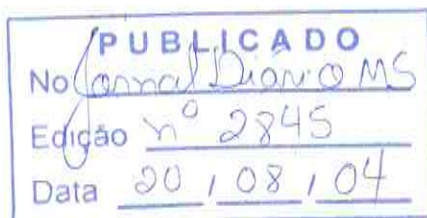 PUBLICADO
No Jornal Diário MS
Edição nº 2845
Data 20 / 08 / 04